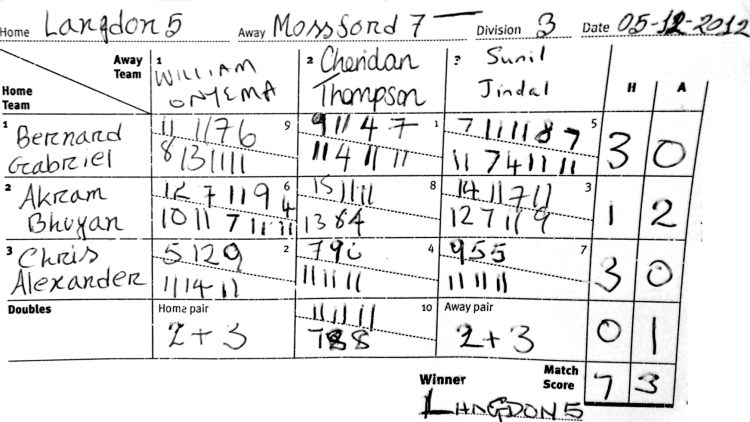 Home Langdon 5 Away Mossford 7 Division 3 Date 05-12-2012
Away Team 1 WILLIAM ONYEMA 2 Cheridan Thompson 3 Sunil Jindal H A
Home Team
1 Bernard Gabriel
11 11 7 6 9
8 13 11 11
9 11 4 7 1
11 4 11 11
7 11 11 8 7 5
11 7 4 11 11
3 0
2 Akram Bhuyan
12 7 11 9 4 6
10 11 7 11 11
15 11 11 8
13 8 4
14 11 7 11 3
12 7 11 9
1 2
3 Chris Alexander
5 12 9 2
11 14 11
7 9 4
11 11 11
9 5 5 7
11 11 11
3 0
Doubles Home pair 2+3
11 11 11 10
7 8 8
Away pair 2+3
0 1
Winner Match Score 7 3
LANGDON 5